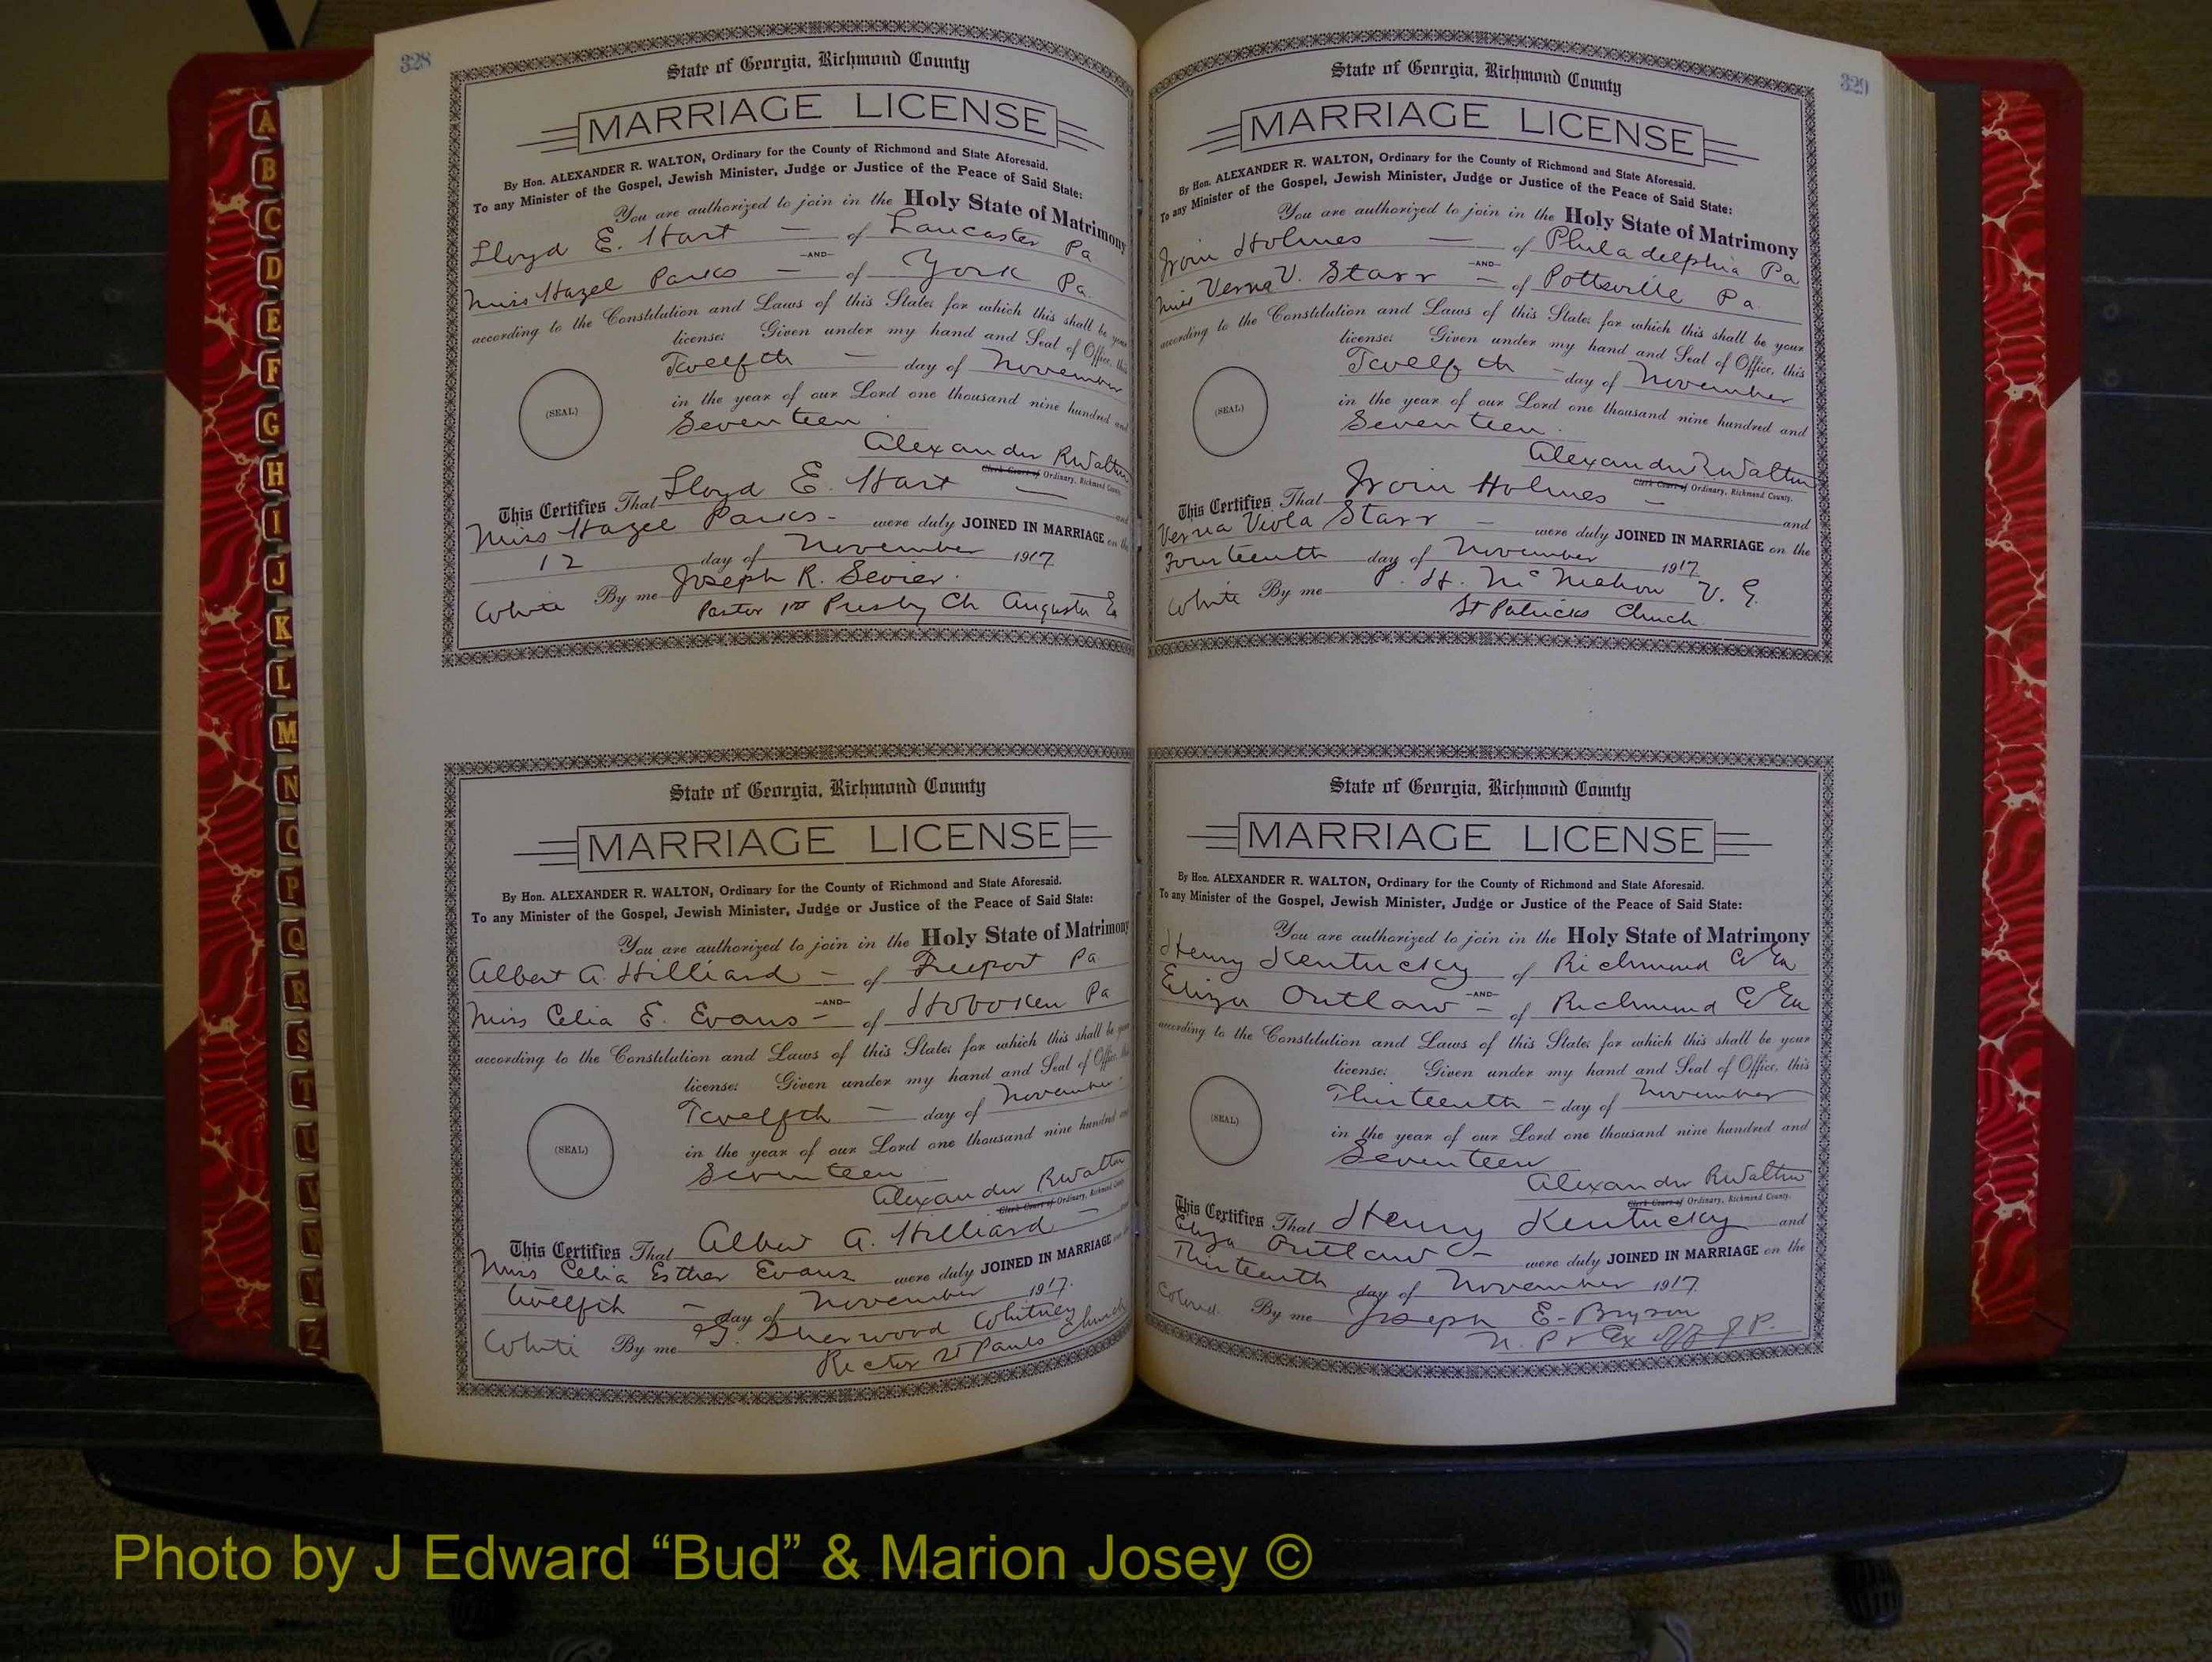 328
State of Georgia, Richmond County
MARRIAGE LICENSE
By Hon. ALEXANDER R. WALTON, Ordinary for the County of Richmond and State Aforesaid.
To any Minister of the Gospel, Jewish Minister, Judge or Justice of the Peace of Said State:
You are authorized to join in the Holy State of Matrimony
Lloyd E. Hart — of Lancaster Pa
—AND—
Miss Hazel Parks — of York Pa.
according to the Constitution and Laws of this State; for which this shall be your
license: Given under my hand and Seal of Office, this
Twelfth — day of November
(SEAL)
in the year of our Lord one thousand nine hundred and
Seventeen
Alexander R Walton
Clerk Court of Ordinary, Richmond County.
This Certifies That Lloyd E. Hart — and
Miss Hazel Parks - were duly JOINED IN MARRIAGE on the
12 day of November 1917
White By me Joseph R. Sevier.
Pastor 1st Presby Ch Augusta Ga
State of Georgia, Richmond County
MARRIAGE LICENSE
By Hon. ALEXANDER R. WALTON, Ordinary for the County of Richmond and State Aforesaid.
To any Minister of the Gospel, Jewish Minister, Judge or Justice of the Peace of Said State:
You are authorized to join in the Holy State of Matrimony
Albert A. Hilliard — of Freeport Pa
—AND—
Miss Celia E. Evans — of Hoboken Pa
according to the Constitution and Laws of this State; for which this shall be your
license: Given under my hand and Seal of Office, this
Twelfth — day of November.
(SEAL)
in the year of our Lord one thousand nine hundred and
Seventeen
Alexander R Walton
Clerk Court of Ordinary, Richmond County.
This Certifies That Albert A. Hilliard — and
Miss Celia Esther Evans were duly JOINED IN MARRIAGE on the
twelfth — day of November 1917.
White By me G. Sherwood Whitney
Rector St Pauls Church
329
State of Georgia, Richmond County
MARRIAGE LICENSE
By Hon. ALEXANDER R. WALTON, Ordinary for the County of Richmond and State Aforesaid.
To any Minister of the Gospel, Jewish Minister, Judge or Justice of the Peace of Said State:
You are authorized to join in the Holy State of Matrimony
Irvin Holmes — of Philadelphia Pa
—AND—
Miss Verna V. Starr — of Pottsville Pa.
according to the Constitution and Laws of this State; for which this shall be your
license: Given under my hand and Seal of Office, this
Twelfth — day of November
(SEAL)
in the year of our Lord one thousand nine hundred and
Seventeen.
Alexander R Walton
Clerk Court of Ordinary, Richmond County.
This Certifies That Irvin Holmes — and
Verna Viola Starr — were duly JOINED IN MARRIAGE on the
Fourteenth day of November 1917.
White By me P. H. McMahon V. G.
St Patricks Church
State of Georgia, Richmond County
MARRIAGE LICENSE
By Hon. ALEXANDER R. WALTON, Ordinary for the County of Richmond and State Aforesaid.
To any Minister of the Gospel, Jewish Minister, Judge or Justice of the Peace of Said State:
You are authorized to join in the Holy State of Matrimony
Henry Kentucky of Richmond C Ga
—AND—
Eliza Outlaw — of Richmond C Ga
according to the Constitution and Laws of this State; for which this shall be your
license: Given under my hand and Seal of Office, this
Thirteenth — day of November
(SEAL)
in the year of our Lord one thousand nine hundred and
Seventeen
Alexander R Walton
Clerk Court of Ordinary, Richmond County.
This Certifies That Henry Kentucky and
Eliza Outlaw — were duly JOINED IN MARRIAGE on the
Thirteenth day of November 1917.
Colored. By me Joseph E. Bryson
N. P & Ex Off J P.
A
B
C
D
E
F
G
H
I
J
K
L
M
N
O
P
Q
R
S
T
U
V
Z
Photo by J Edward “Bud” & Marion Josey ©